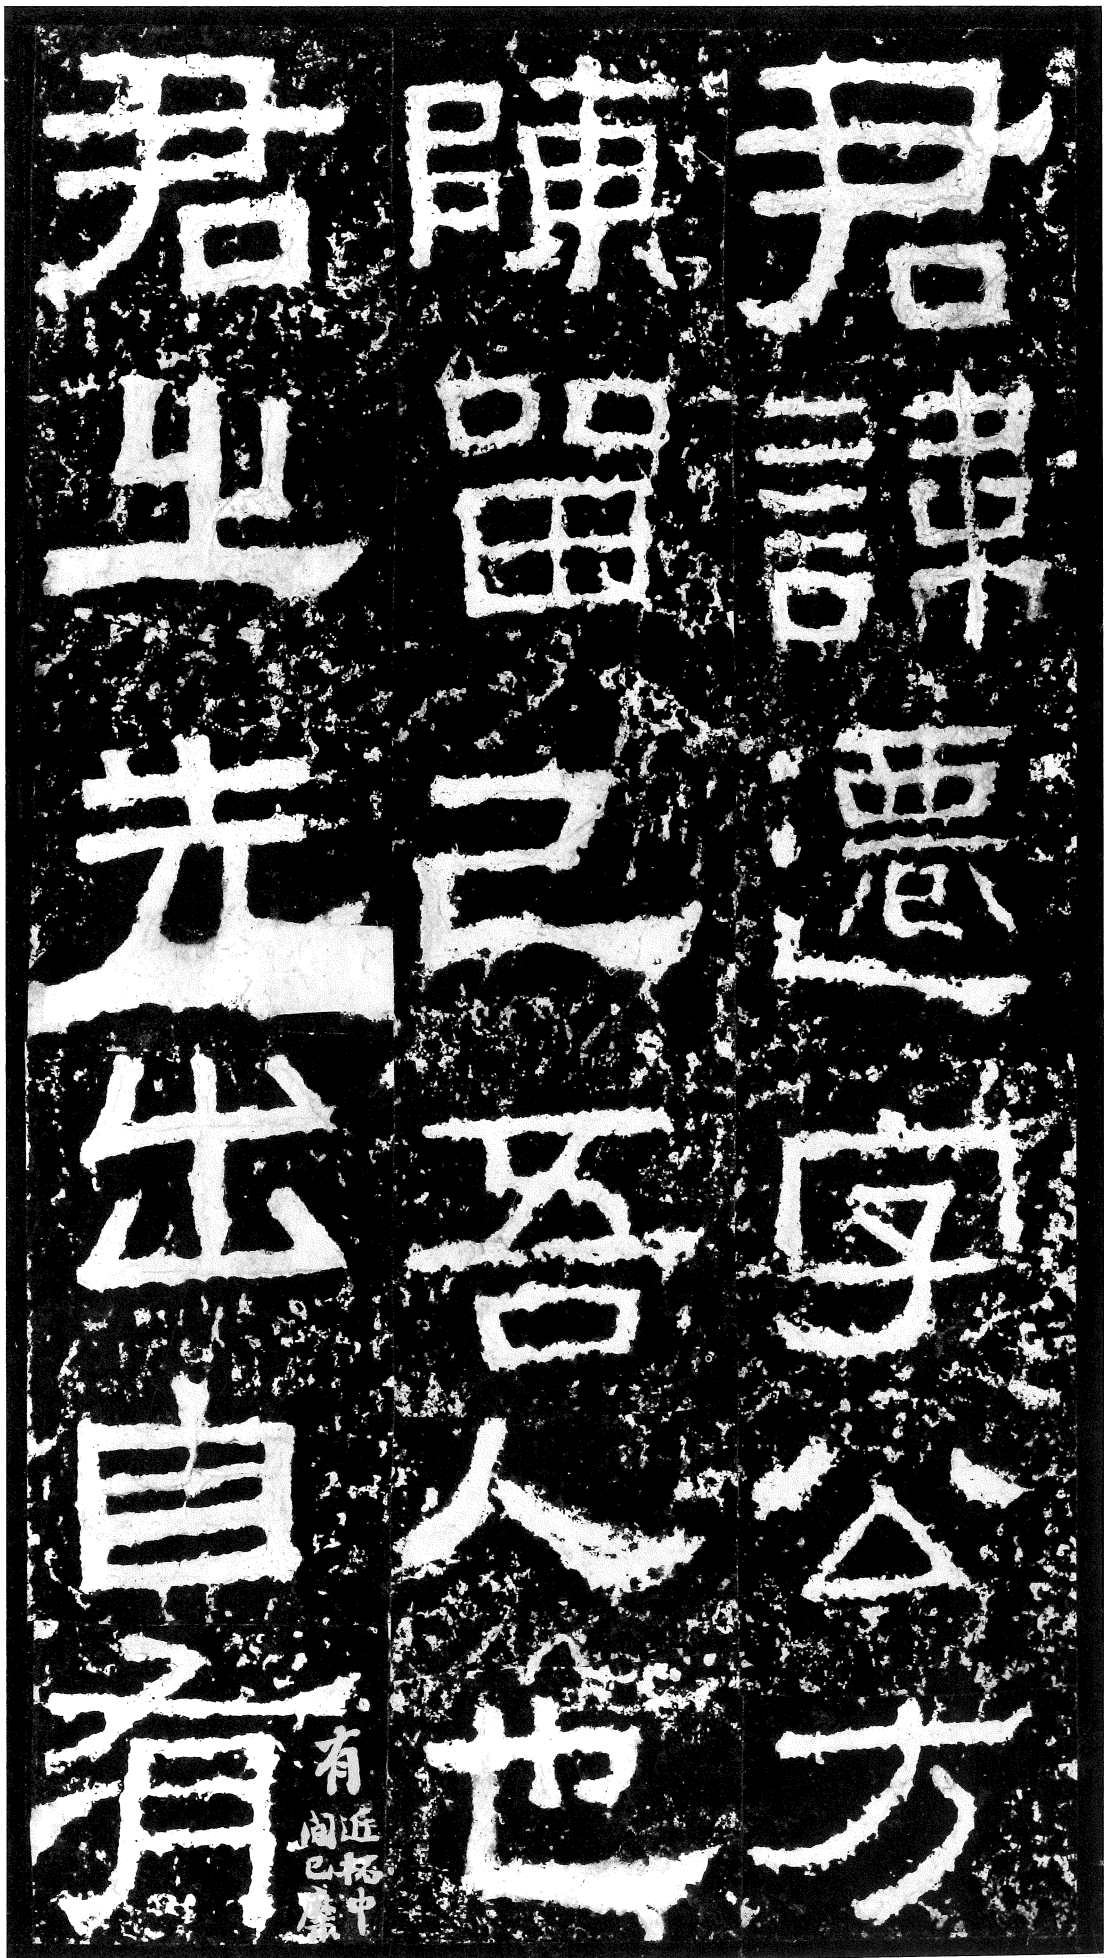 君諱遷字公方
陳留己吾人也
君之先出自有
有
近拓中
間已